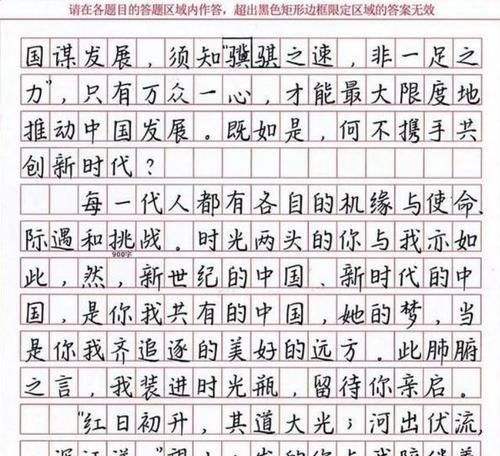 请在各题目的答题区域内作答，超出黑色矩形边框限定区域的答案无效
国谋发展，须知"骥骐之速，非一足之
力"，只有万众一心，才能最大限度地
推动中国发展。既如是，何不携手共
创新时代？
每一代人都有各自的机缘与使命、
际遇和挑战。时光两头的你与我亦如
900字
此，然，新世纪的中国、新时代的中
国，是你我共有的中国，她的梦，当
是你我齐追逐的美好的远方。此肺腑
之言，我装进时光瓶，留待你亲启。
"红日初升，其道大光；河出伏流，